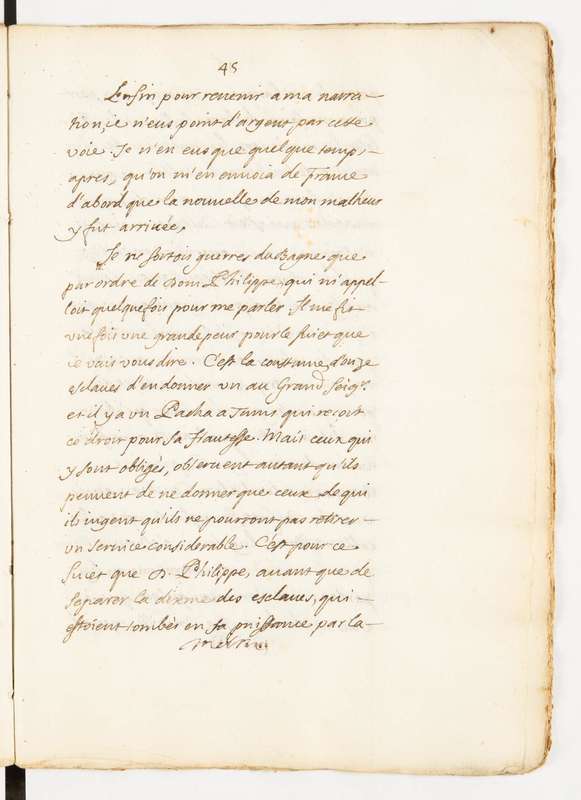 45
Enfin pour revenir a ma narra-
tion, ie n'eus point d'argent par cette
voie. Je n'en eus que quelque temps
apres, qu'on m'en envoia de France
d'abord que la nouvelle de mon malheur
y fut arrivée.
Je ne sortois guerres du Bagne que
par ordre de Dom Philippe, qui m'appel-
loit quelquefois pour me parler. Il me fit
une fois une grande peur pour le suiet que
ie vais vous dire. C'est la coustume d'onze
esclaves d'en donner un au Grand Seigr.
et il y a un Pacha a Tunis qui recoit
ce droit pour sa Hautesse. Mais ceux qui
y sont obligés, observent autant qu'ils
peuvent de ne donner que ceux de qui
ils iugent qu'ils ne pourront pas retirer
un service considerable. C'est pour ce
suiet que D. Philippe, avant que de
separer la dixme des esclaves, qui
estoient tombés en sa puissance par la